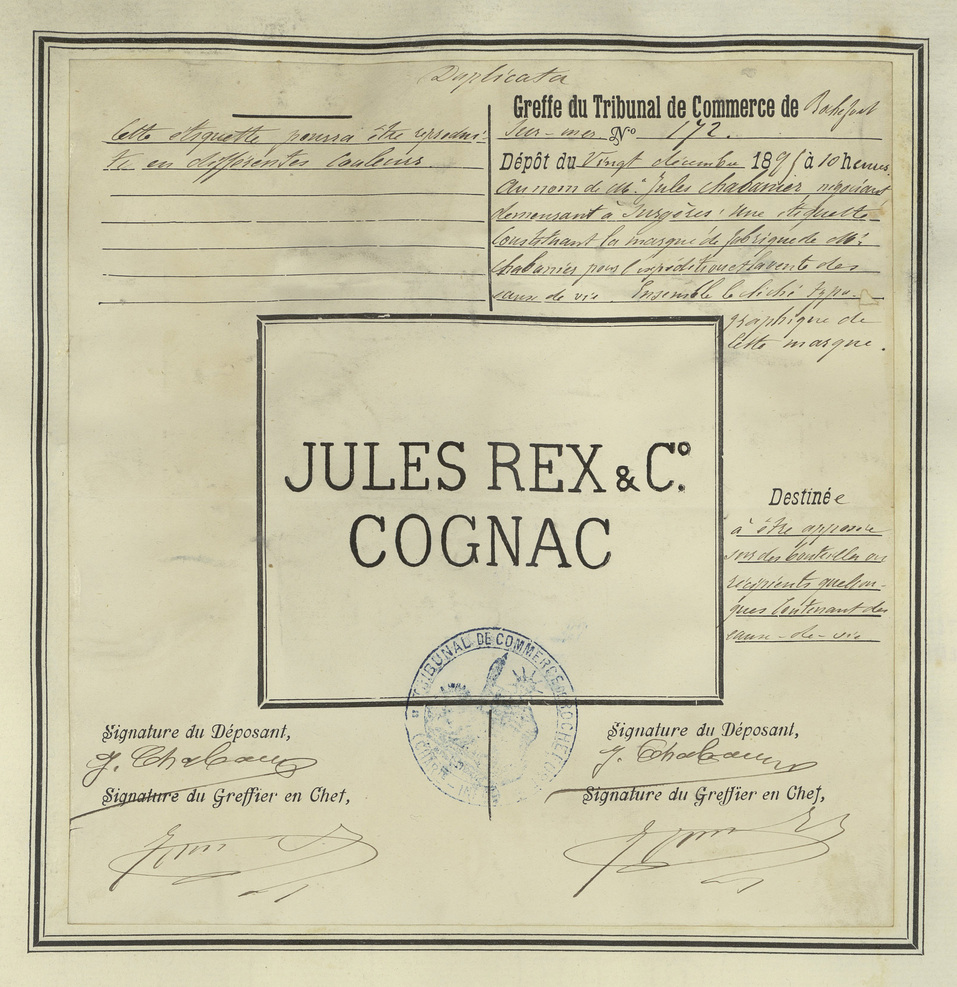 Duplicata
Cette étiquette pourra être reprodui-
te en différentes couleurs
Greffe du Tribunal de Commerce de Rochefort
sur-mer Nº 172.
Dépôt du Vingt décembre 1895 à 10 heures
Au nom de Mr. Jules Chabanier négociant
demeurant à Surgères: Une étiquette
constituant la marque de fabrique de Mr.
Chabanier pour l'expédition et la vente des
eaux de vie. Ensemble le cliché typo-
graphique de
cette marque.
JULES REX & Cº.
COGNAC
Destinée
à être apposée
sur des bouteilles ou
récipients quelcon-
ques contenant des
eaux-de-vie
TRIBUNAL DE COMMERCE DE ROCHEFORT
Signature du Déposant,
J. Chabanier
Signature du Greffier en Chef,
Signature du Déposant,
J. Chabanier
Signature du Greffier en Chef,